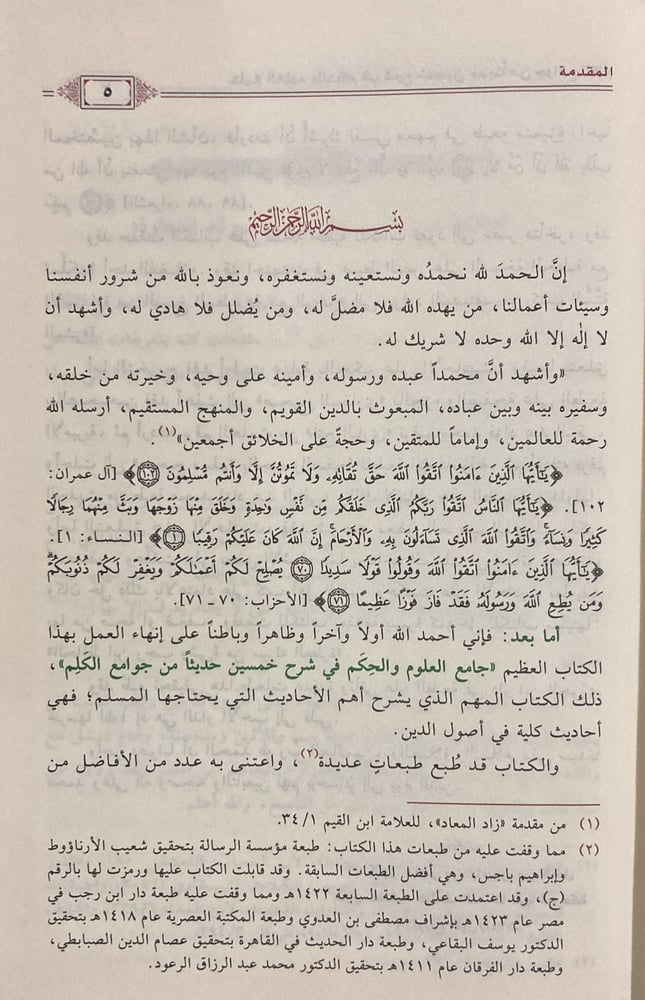 المقدمة
٥
بسم الله الرحمن الرحيم
إنَّ الحمدَ لله نحمدُه ونستعينه ونستغفره، ونعوذ بالله من شرور أنفسنا
وسيئات أعمالنا، من يهده الله فلا مضلَّ له، ومن يُضلل فلا هادي له، وأشهد أن
لا إلٰه إلا الله وحده لا شريك له.
«وأشهد أنَّ محمداً عبده ورسوله، وأمينه على وحيه، وخيرته من خلقه،
وسفيره بينه وبين عباده، المبعوث بالدين القويم، والمنهج المستقيم، أرسله الله
رحمة للعالمين، وإماماً للمتقين، وحجةً على الخلائق أجمعين»(١).
﴿يَٰٓأَيُّهَا ٱلَّذِينَ ءَامَنُوا۟ ٱتَّقُوا۟ ٱللَّهَ حَقَّ تُقَاتِهِۦ وَلَا تَمُوتُنَّ إِلَّا وَأَنتُم مُّسْلِمُونَ ١٠٢﴾ [آل عمران:
١٠٢]. ﴿يَٰٓأَيُّهَا ٱلنَّاسُ ٱتَّقُوا۟ رَبَّكُمُ ٱلَّذِى خَلَقَكُم مِّن نَّفْسٍ وَٰحِدَةٍ وَخَلَقَ مِنْهَا زَوْجَهَا وَبَثَّ مِنْهُمَا رِجَالًا
كَثِيرًا وَنِسَآءً ۚ وَٱتَّقُوا۟ ٱللَّهَ ٱلَّذِى تَسَآءَلُونَ بِهِۦ وَٱلْأَرْحَامَ ۚ إِنَّ ٱللَّهَ كَانَ عَلَيْكُمْ رَقِيبًا ١﴾ [النساء: ١].
﴿يَٰٓأَيُّهَا ٱلَّذِينَ ءَامَنُوا۟ ٱتَّقُوا۟ ٱللَّهَ وَقُولُوا۟ قَوْلًا سَدِيدًا ٧٠ يُصْلِحْ لَكُمْ أَعْمَٰلَكُمْ وَيَغْفِرْ لَكُمْ ذُنُوبَكُمْ ۗ
وَمَن يُطِعِ ٱللَّهَ وَرَسُولَهُۥ فَقَدْ فَازَ فَوْزًا عَظِيمًا ٧١﴾ [الأحزاب: ٧٠ ـ ٧١].
أما بعد: فإني أحمد الله أولاً وآخراً وظاهراً وباطناً على إنهاء العمل بهذا
الكتاب العظيم «جامع العلوم والحِكَم في شرح خمسين حديثاً من جوامع الكَلِم»،
ذلك الكتاب المهم الذي يشرح أهم الأحاديث التي يحتاجها المسلم؛ فهي
أحاديث كلية في أصول الدين.
والكتاب قد طُبع طبعاتٍ عديدة(٢)، واعتنى به عدد من الأفاضل من
(١) من مقدمة «زاد المعاد»، للعلامة ابن القيم ٣٤/١.
(٢) مما وقفت عليه من طبعات هذا الكتاب: طبعة مؤسسة الرسالة بتحقيق شعيب الأرناؤوط
وإبراهيم باجس، وهي أفضل الطبعات السابقة. وقد قابلت الكتاب عليها ورمزت لها بالرقم
(ج)، وقد اعتمدت على الطبعة السابعة ١٤٢٢هـ ومما وقفت عليه طبعة دار ابن رجب في
مصر عام ١٤٢٣هـ بإشراف مصطفى بن العدوي وطبعة المكتبة العصرية عام ١٤١٨هـ بتحقيق
الدكتور يوسف البقاعي، وطبعة دار الحديث في القاهرة بتحقيق عصام الدين الصبابطي،
وطبعة دار الفرقان عام ١٤١١هـ بتحقيق الدكتور محمد عبد الرزاق الرعود.